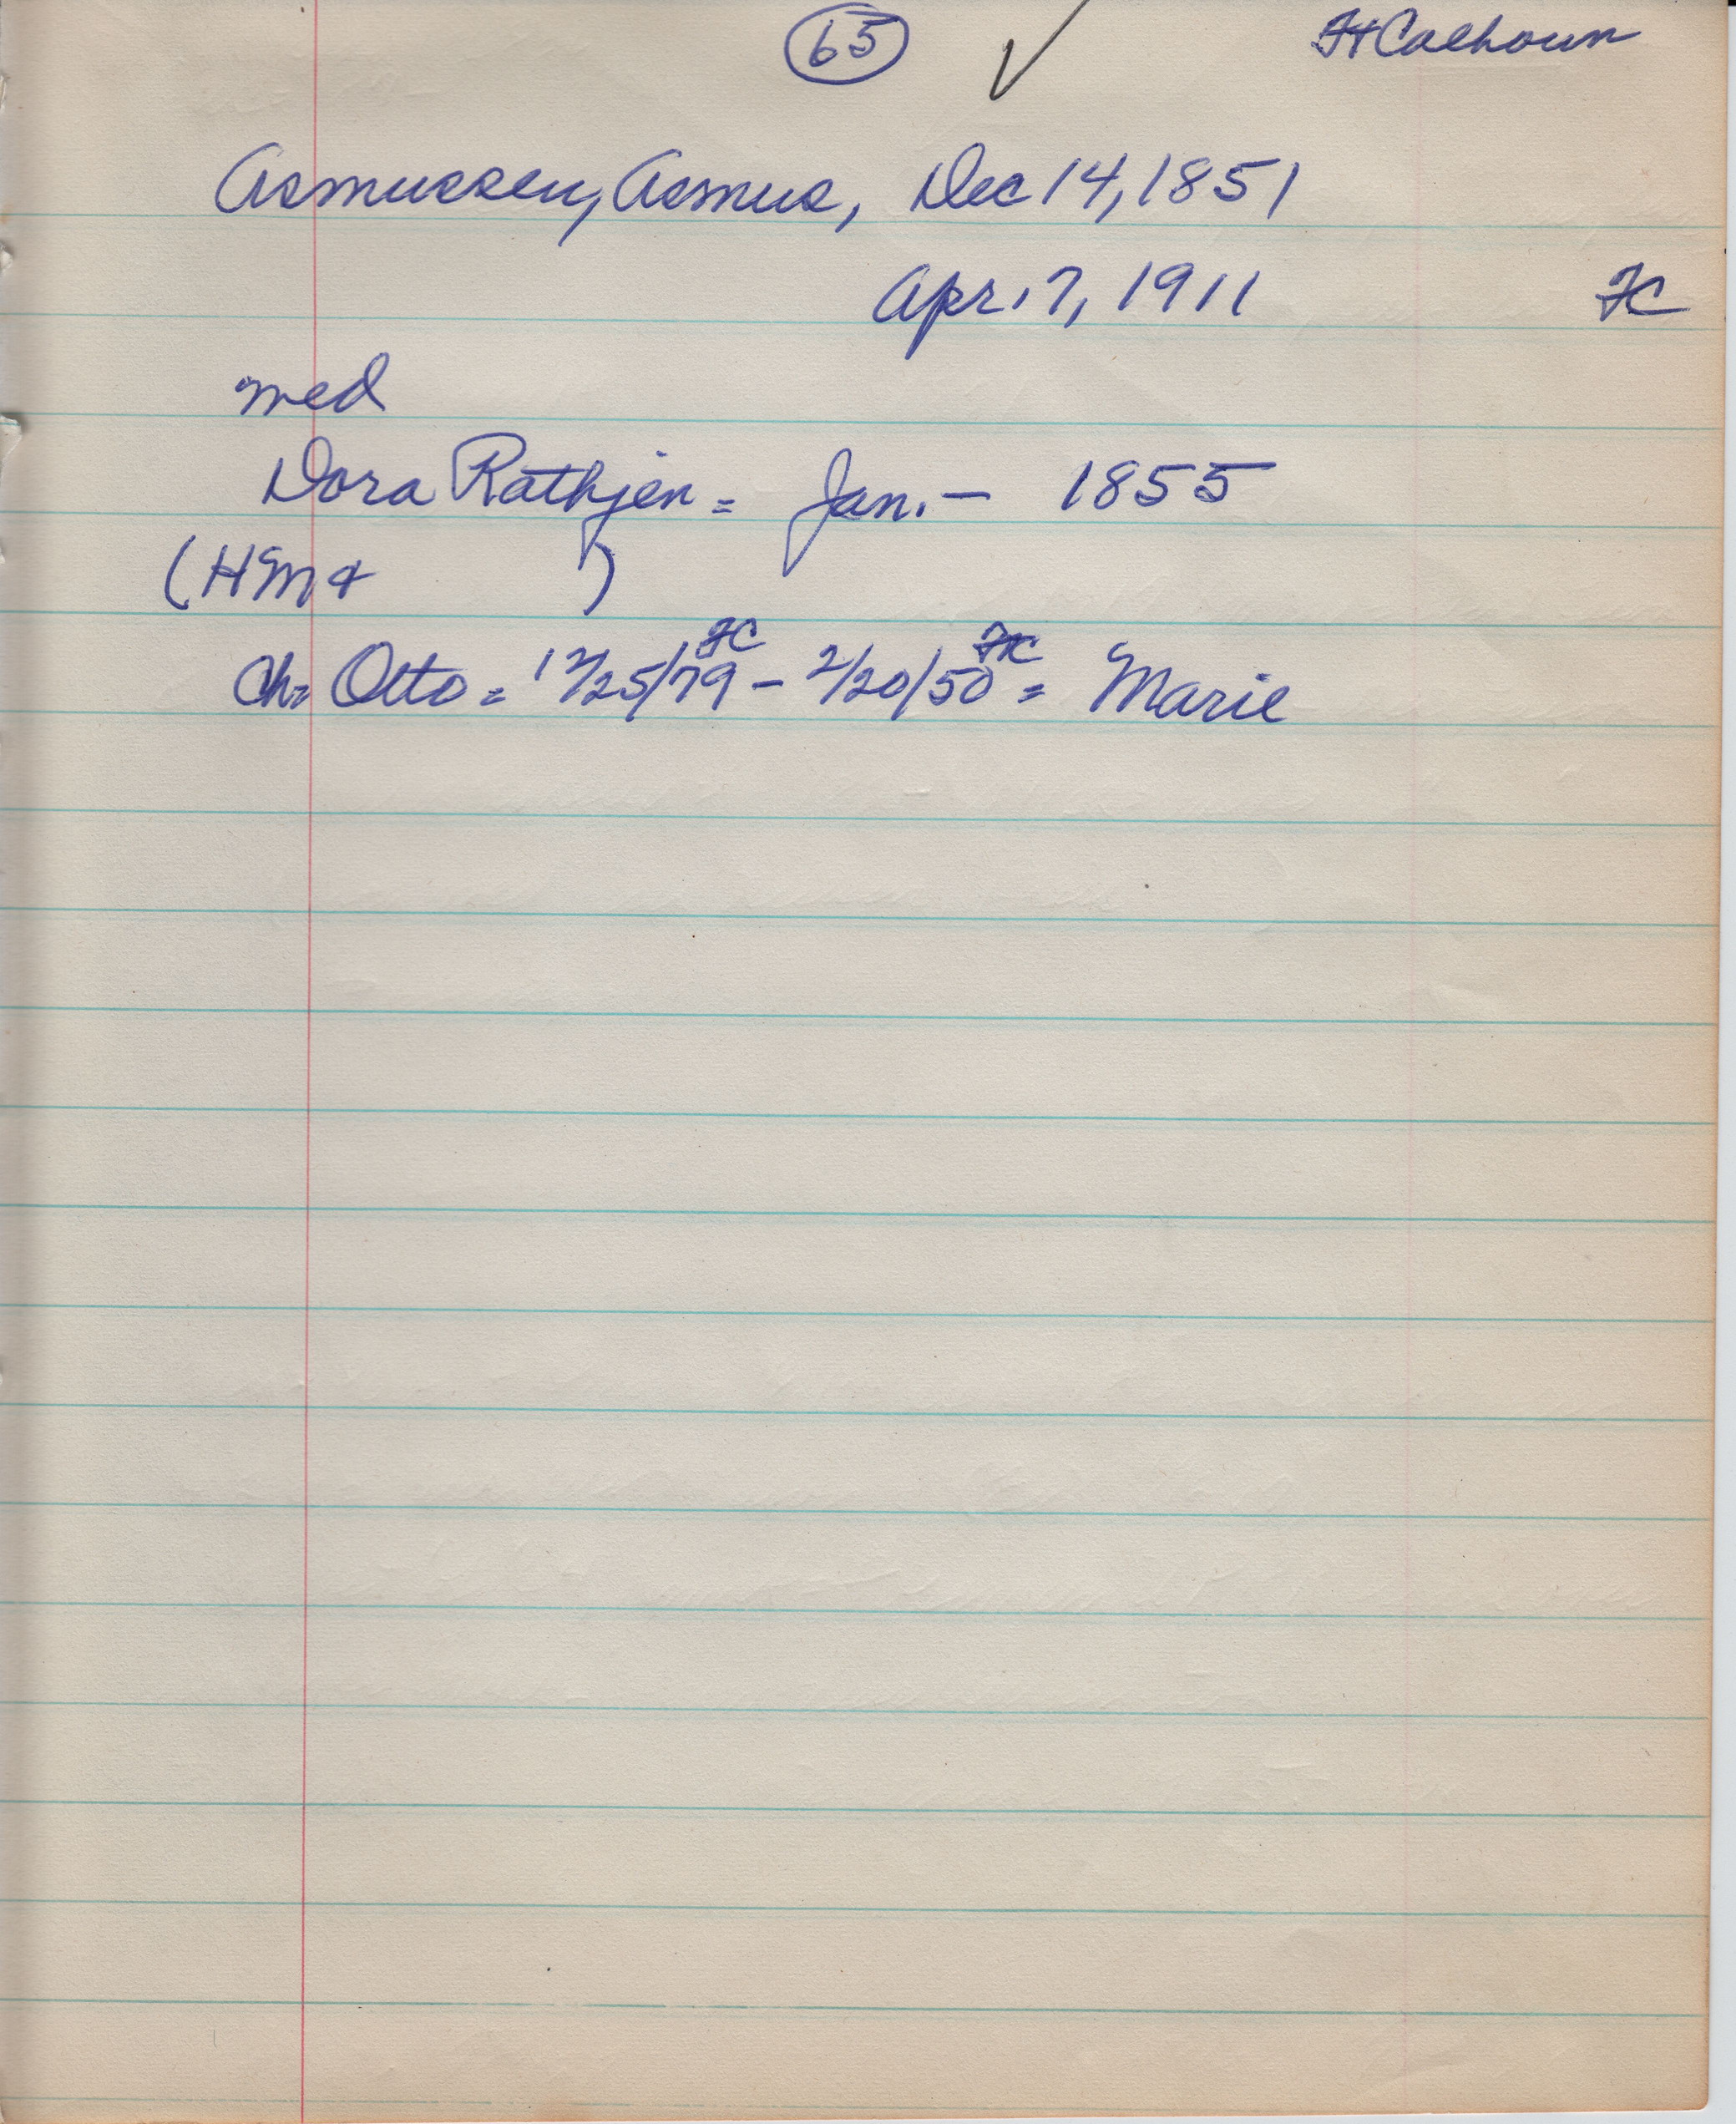 65 ✓ Ft Calhoun
Asmussen, Asmus, Dec 14, 1851
Apr. 7, 1911 FC
med
Dora Rathjen = Jan. — 1855
(HM & )
FC FC
Ch = Otto = 12/25/79 - 2/20/50 = Marie